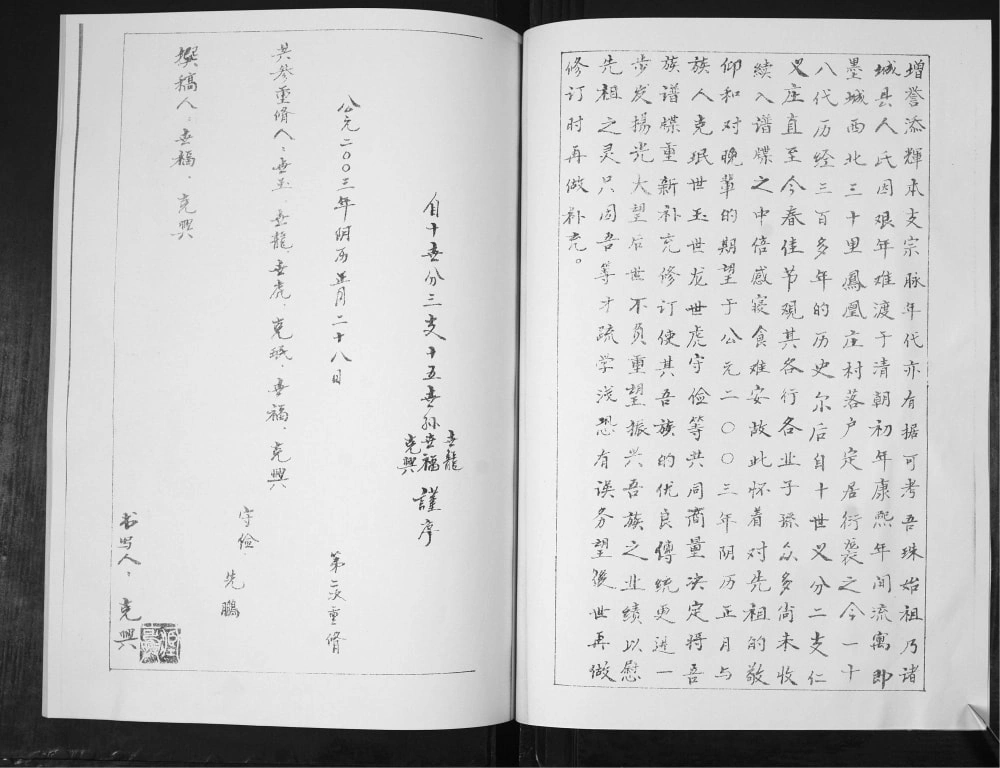 增誉添輝本支宗脉年代亦有据可考吾珠始祖乃诸
城县人氏因艰年难渡于清朝初年康熙年间流寓即
墨城西北三十里鳳凰庄村落户定居衍袭之今一十
八代历经三百多年的历史尔后自十世义分二支仁
义庄直至今春佳节观其各行各业子孫众多尚未收
续入谱牒之中倍感寝食难安故此怀着对先祖的敬
仰和对晚輩的期望于公元二〇〇三年阴历正月与
族人克珉世玉世龙世虎守俭等共同商量决定将吾
族谱牒重新补充修订使其吾族的优良傳統更进一
步发揚光大望后世不负重望振兴吾族之业绩以慰
先祖之灵只因吾等才疏学浅恐有误务望後世再做
修订时再做补充。
自十世分三支十五世孙世龍世福克興 謹序
公元二〇〇三年阴历正月二十八日 第二次重脩
共参重脩人：世玉、世龍、世虎、克珉、世福、克興
守儉、先鵬
撰稿人：世福、克興
书写人：克興